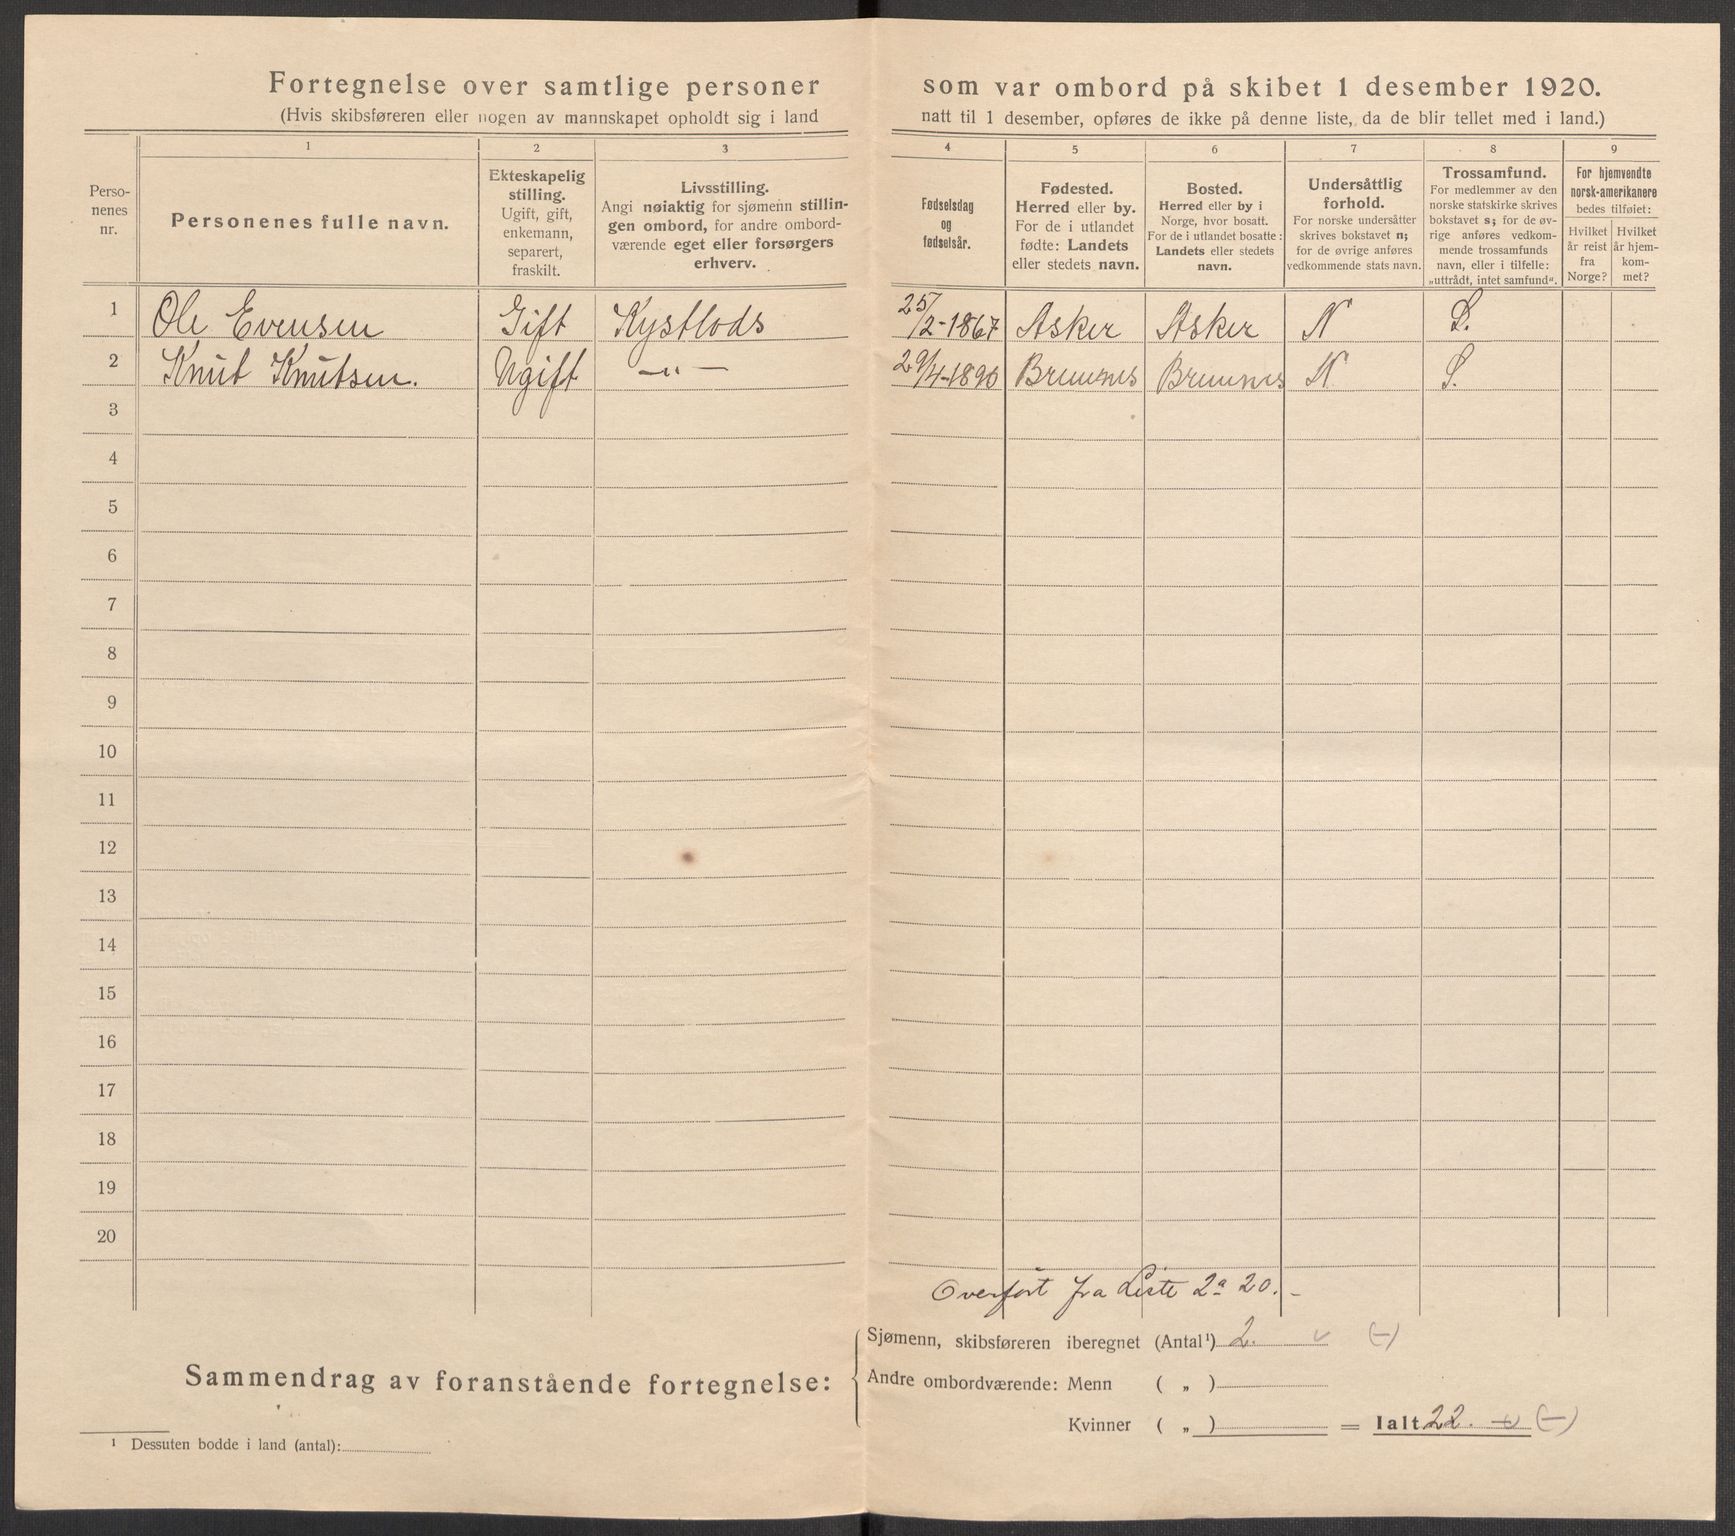 Fortegnelse over samtlige personer som var ombord på skibet 1 desember 1920.
(Hvis skibsføreren eller nogen av mannskapet opholdt sig i land natt til 1 desember, opføres de ikke på denne liste, da de blir tellet med i land.)
1 2 3 4 5 6 7 8 9
Perso-
nenes
nr.
Personenes fulle navn.
Ekteskapelig
stilling.
Ugift, gift,
enkemann,
separert,
fraskilt.
Livsstilling.
Angi nøiaktig for sjømenn stillin-
gen ombord, for andre ombord-
værende eget eller forsørgers
erhverv.
Fødselsdag
og
fødselsår.
Fødested.
Herred eller by.
For de i utlandet
fødte: Landets
eller stedets navn.
Bosted.
Herred eller by i
Norge, hvor bosatt.
For de i utlandet bosatte:
Landets eller stedets
navn.
Undersåttlig
forhold.
For norske undersåtter
skrives bokstavet n;
for de øvrige anføres
vedkommende stats navn.
Trossamfund.
For medlemmer av den
norske statskirke skrives
bokstavet s; for de øv-
rige anføres vedkom-
mende trossamfunds
navn, eller i tilfelle:
„uttrådt, intet samfund".
For hjemvendte
norsk-amerikanere
bedes tilføiet:
Hvilket
år reist
fra
Norge?
Hvilket
år hjem-
kom-
met?
1 Ole Evensen Gift Kystlods 25/2-1867 Asker Asker N S.
2 Knut Knutsen. Ugift —„— 29/4-1890 Bremnes Bremnes N S.
3
4
5
6
7
8
9
10
11
12
13
14
15
16
17
18
19
20
Overført fra Liste 2a 20.-
Sammendrag av foranstående fortegnelse:
Sjømenn, skibsføreren iberegnet (Antal¹) 2. v (-)
Andre ombordværende: Menn ( „ )
Kvinner ( „ ) = Ialt 22. (-)
¹ Dessuten bodde i land (antal):